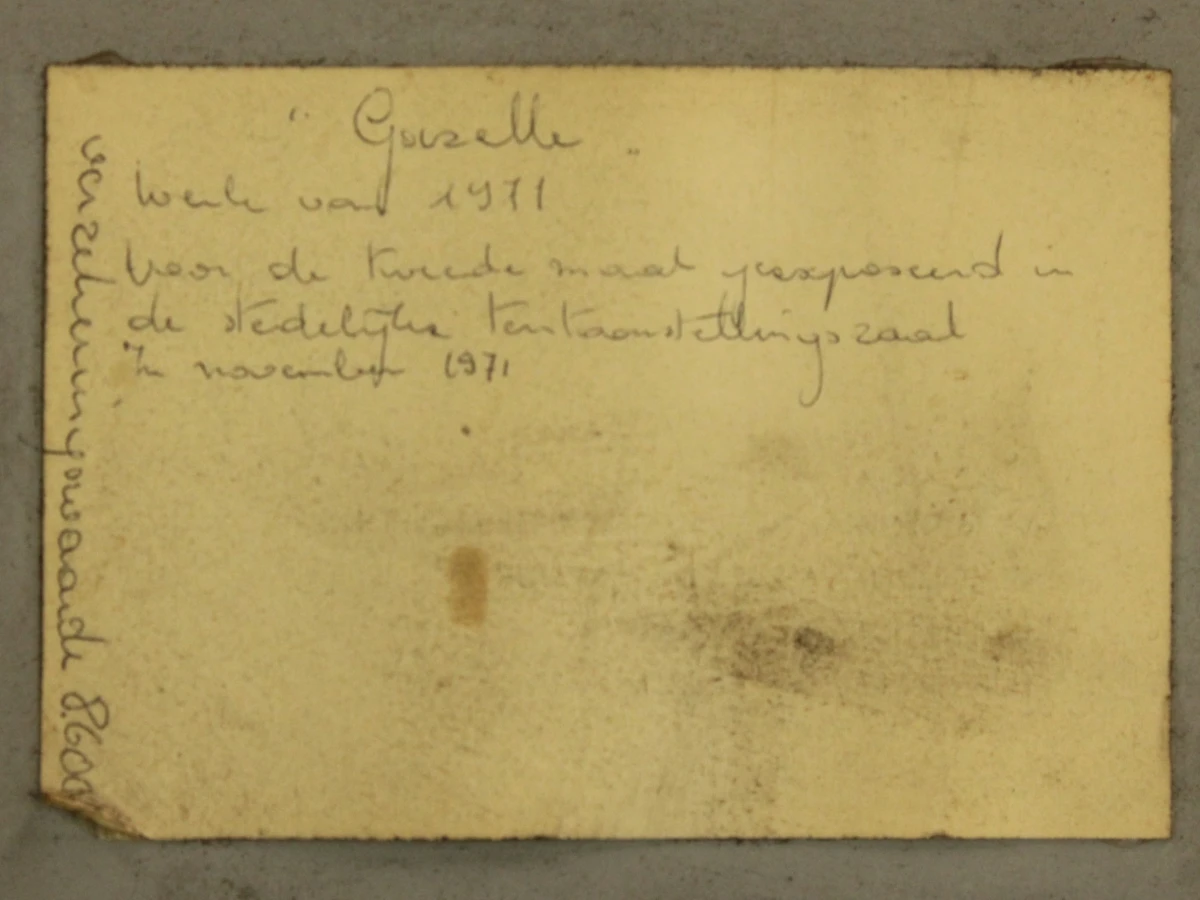 " Gazelle "
Werk van 1971
Voor de tweede maal geexposeerd in
de stedelijke tentoonstellingszaal
In november 1971
verzekeringswaarde 8.600